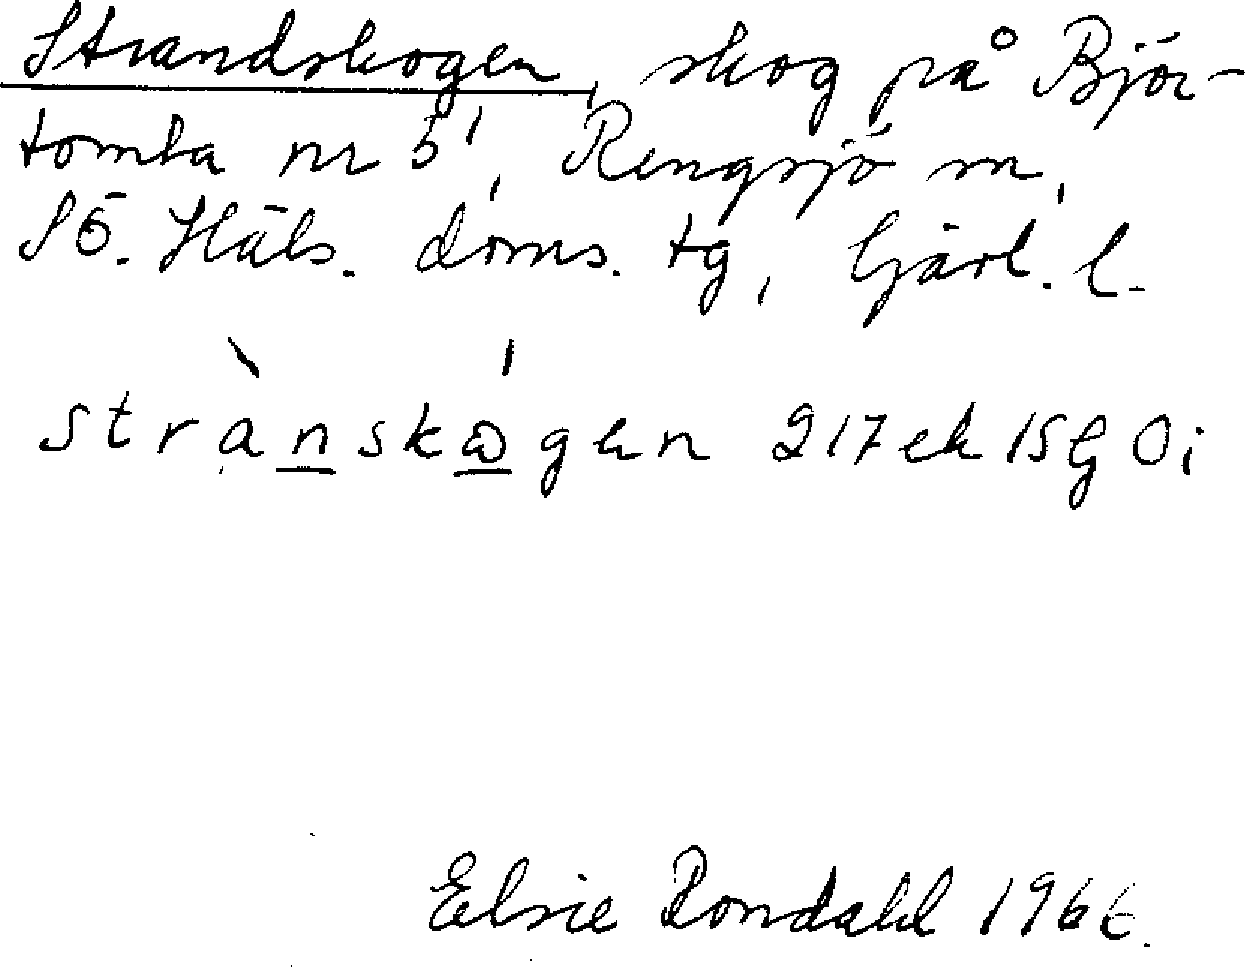 Strandskogen, skog på Björ-
tomta nr 5¹, Rengsjö sn,
SÖ. Häls. doms. tg, Gävl. l.
strànskώgen 217ek 15G Oi
Elsie Rondahl 1966.